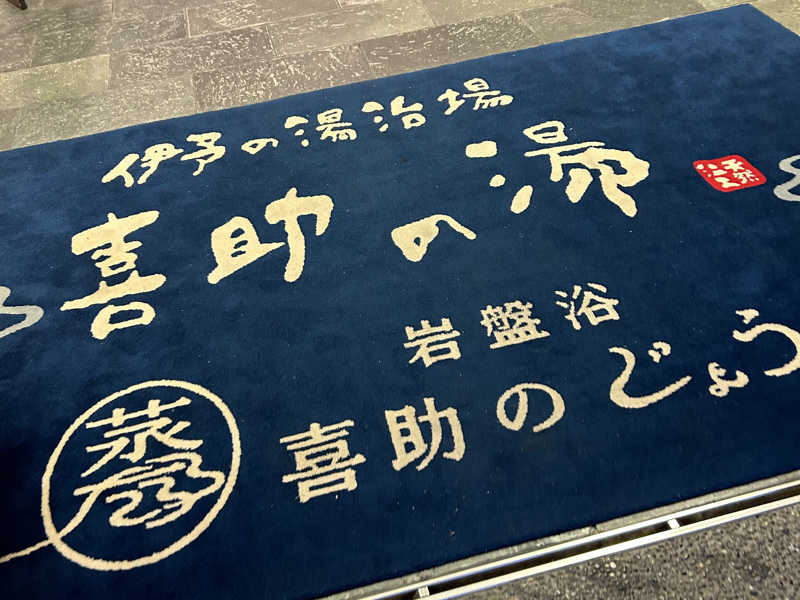 伊予の湯治場
喜助の湯
天然
岩盤浴
喜助のじょう
蒸